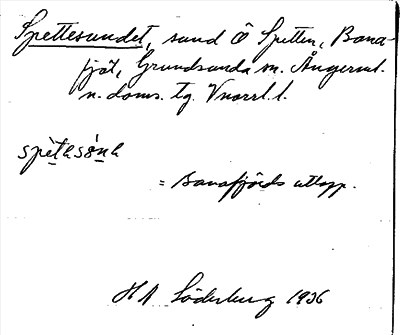 Spettesundet, sund Ö Spetten, Bana-
fjäl, Grundsunda sn. Ångerml.
n. doms. tg. Vnorrl. l.
= Banafjärds utlopp.
H N Söderberg 1936